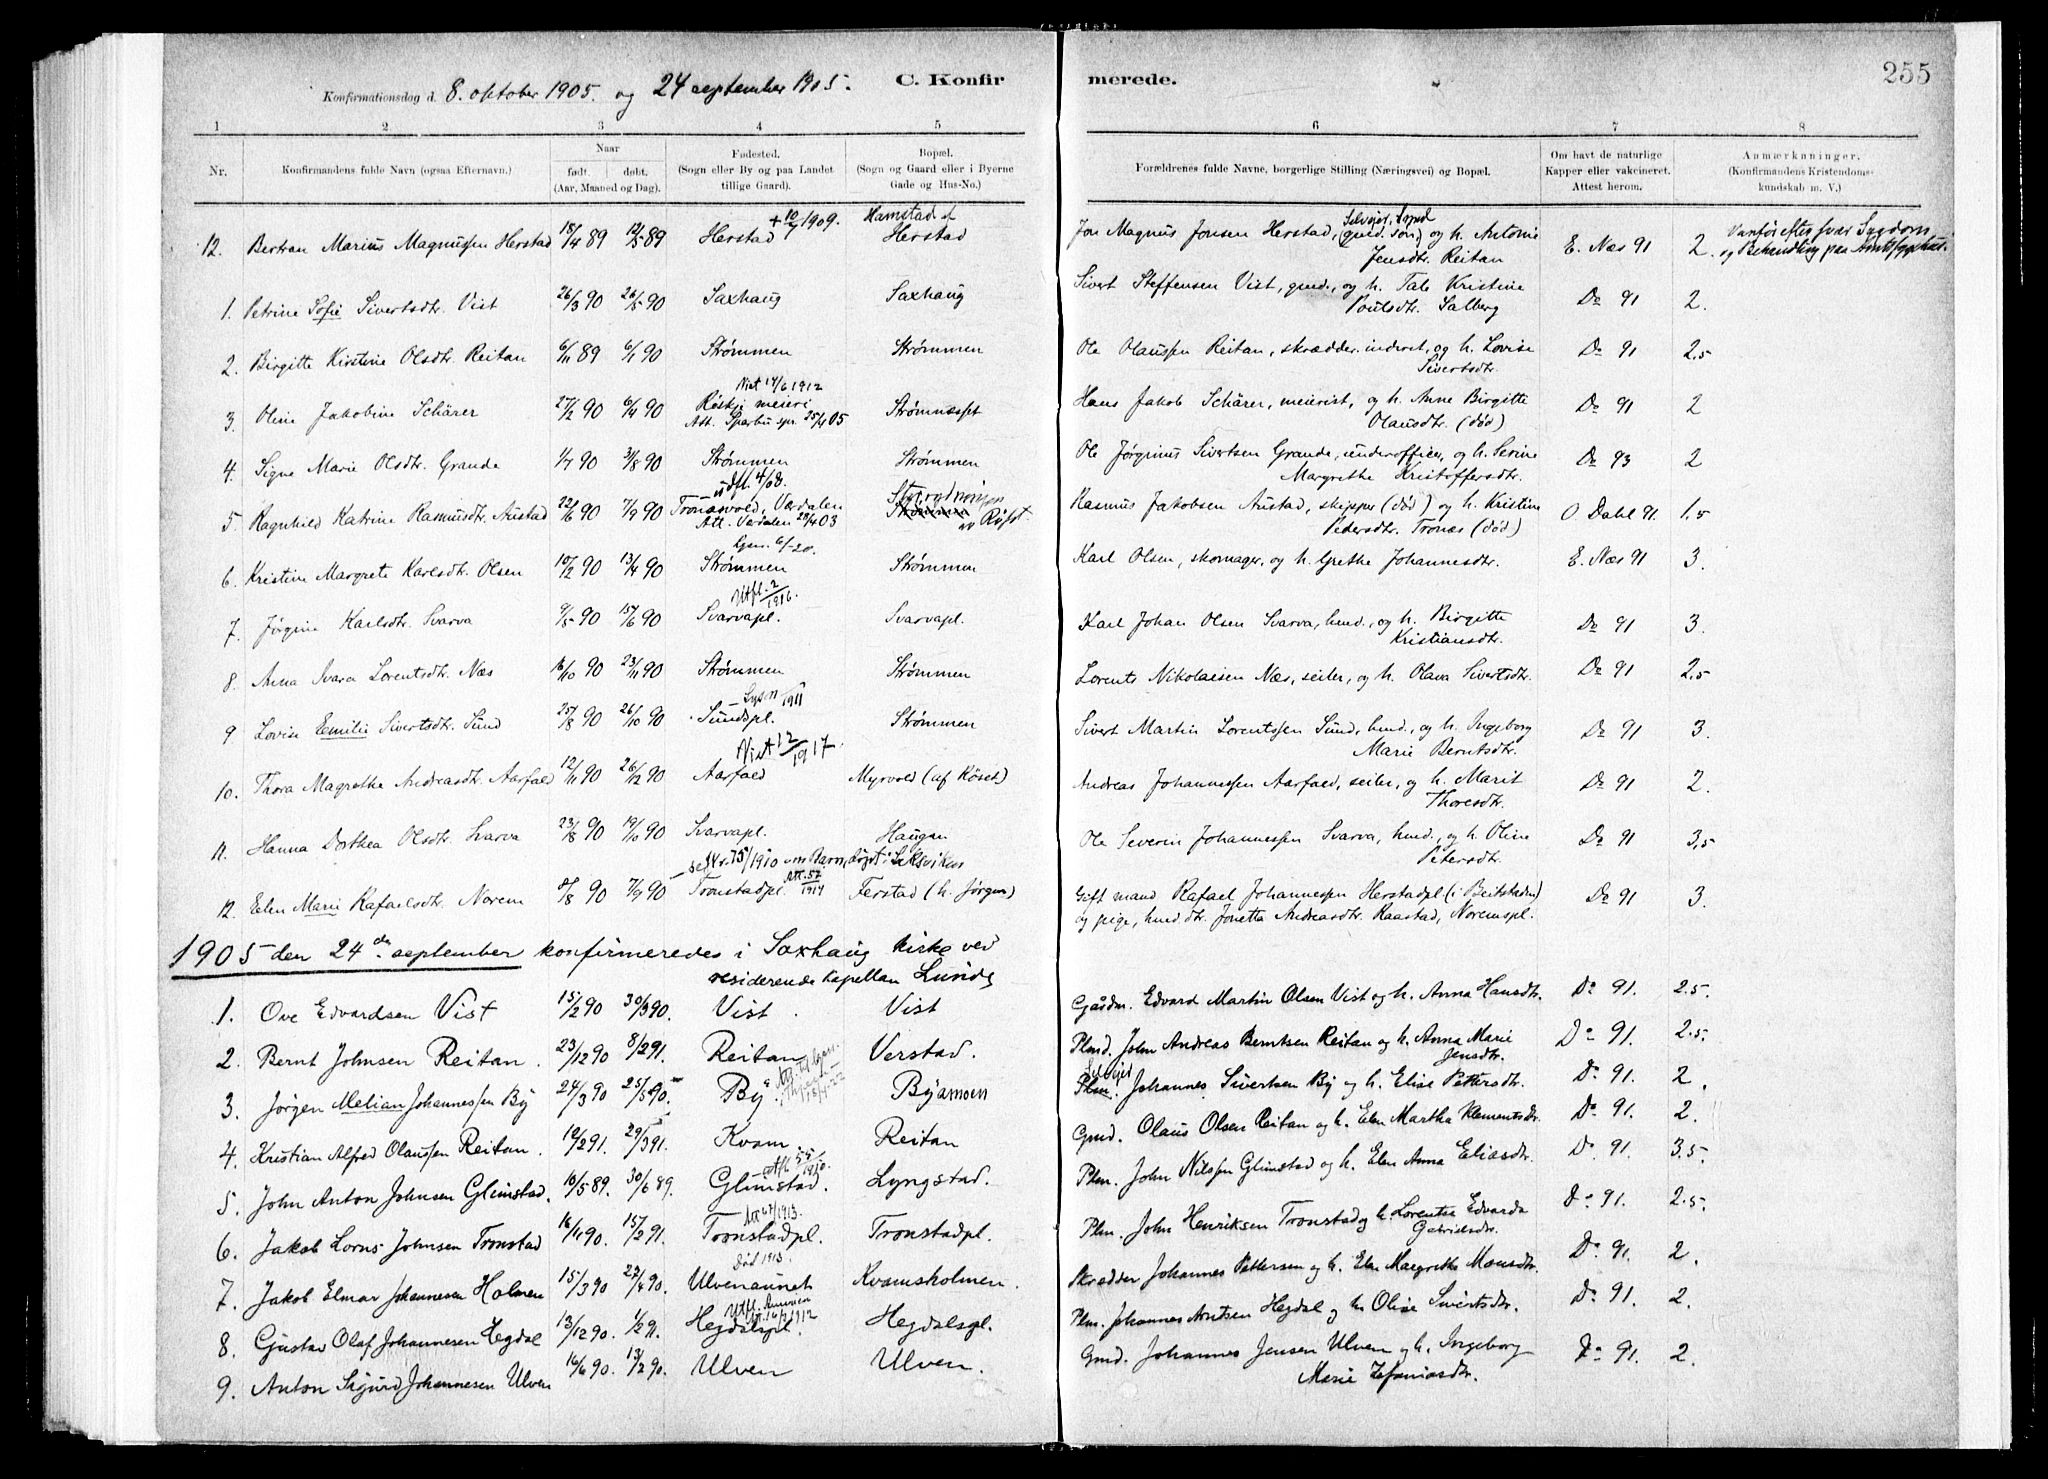 Konfirmationsdag d. 8. oktober 1905. og 24 september 1905. C. Konfirmerede. 255
1 2 3 4 5 6 7 8
Nr. Konfirmandens fulde Navn (ogsaa Efternavn.) Naar født. døbt. (Aar, Maaned og Dag). Fødested. (Sogn eller By og paa Landet tillige Gaard). Bopæl. (Sogn og Gaard eller i Byerne Gade og Hus-No.) Forældrenes fulde Navne, borgerlige Stilling (Næringsvei) og Bopæl. Om havt de naturlige Kapper eller vakcineret. Attest herom. Anmærkninger. (Konfirmandens Kristendomskundskab m. V.)
12. Bertran Marius Magnussen Herstad 18/4 89 12/5 89 Herstad + 10/7 1909. Hamstad af Herstad Jon Magnus Jonsen Herstad, (gmd. søn) og h. Antonie Jensdtr. Reitan E. Næs 91 2. Vanfør efter svær Sygdom og Behandling paa Amtssygehus.
1. Petrine Sofie Sivertsdtr. Vist 26/3 90 26/5 90 Saxhaug Saxhaug Sivert Steffensen Vist, gmd., og h. Tale Kristine Poulsdtr. Salberg Do 91 2.
2. Birgitte Kirstine Olsdtr. Reitan 6/11 89 6/1 90 Strømmen Strømmen Ole Olaussen Reitan, skrædder. inderst, og h. Lovise Sivertsdtr. Do 91 2,5
3. Oline Jakobine Schärer 27/2 90 6/4 90 Viet 14/6 1912 Røskje meieri Att. Sparbu spr. 25/4 05 Strømnesset Hans Jakob Schärer, meierist, og h. Anne Birgitte Olausdtr. (død) Do 91 2
4. Signe Marie Olsdtr. Grande 1/7 90 3/8 90 Strømmen Strømmen Ole Jørginus Sivertsen Grande, underofficer, og h. Serine Margrethe Kristoffersdtr. Do 93 2
5. Ragnhild Katrine Rasmusdtr. Austad 22/6 90 7/9 90 udfl. 4/08. Tronesvold, Værdalen Att. Værdalen 23/4 03 Strømmen Rasmus Jakobsen Austad, skipper (død) og h. Kristine Pedersdtr. Tronæs (død) O Dahl 91. 1,5
6. Kristine Margrete Karlsdtr. Olsen 10/2 90 13/4 90 Strømmen Strømmen Karl Olsen, skomager, og h. Grethe Johannesdtr. E. Næs 91 3.
7. Jørgine Karlsdtr. Svarva 9/5 90 15/6 90 Utfl. 2/1916. Svarvapl. Svarvapl. Karl Johan Olsen Svarva, hmd., og h. Birgitte Kristiansdtr. Do 91 3.
8. Anna Svara Lorentsdtr. Næs 16/10 90 23/11 90 Strømmen Strømmen Lorents Nikolaisen Næs, seiler, og h. Olava Sivertsdtr. Do 91 2,5
9 Lovise Emilie Sivertsdtr. Sund 25/8 90 26/10 90 Sundspl. Strømmen Sivert Martin Lorentssen Sund, hmd., og h. Ingeborg Marie Berntsdtr. Do 91 3.
10. Thora Magrethe Andreasdtr. Aarfald 12/11 90 26/12 90 Viet 12/1917. Aarfald Myrvold (af Köset) Andreas Johannessen Aarfald, seiler, og h. Marit Thoresdtr. Do 91 2.
11. Hanna Dorthea Olsdtr. Svarva 23/8 90 19/10 90 Svarvapl. Haugan Ole Severin Johannessen Svarva, hmd., og h. Oline Petersdtr. Do 91 3,5
12. Elen Marie Rafaelsdtr. Norem 8/8 90 7/9 90 Tronstadpl. Att. 57/1914 Ferstad (h. Jørgen) Gift mand Rafael Johannessen Herstadpl (i Beitstaden) og pige, hmd. dtr. Jonetta Andreasdtr. Raastad, Noremspl. Do 91 3.
1905 den 24de september konfirmeredes i Saxhaug kirke ved
residerende kapellan Lunde
1. Ove Edvardsen Vist 15/2 90 30/3 90. Vist. Vist Gådm. Edvard Martin Olsen Vist og h. Anna Hansdtr. Do 91. 2.5.
2. Bernt Johnsen Reitan. 23/12 90 8/2 91. Reitan Verstad. Plmd. John Andreas Berntsen Reitan og h. Anna Marie Jensdtr. Do 91. 2.5.
3. Jørgen Melian Johannessen By 24/3 90 25/5 90. By Byamoen Selvejer Plm. Johannes Sivertsen By og h. Elise Pettersdtr. Do 91. 2.
4. Kristian Alfred Olaussen Reitan. 12/2 91. 29/3 91. Kvam. Reitan Gmd. Olaus Olsen Reitan og h. Elen Martha Klementsdtr. Do 91. 2.
5. John Anton Johnsen Glimstad. 16/5 89. 30/6 89. Att 55/1910. Glimstad. Lyngstad. Plm. John Nilssen Glimstad og h. Elen Anna Eliasdtr. Do 91. 3.5.
6. Jakob Lorns Johnsen Tronstad 16/11 90. 15/2 91. Att 67/1913. Tronstadpl. Tronstadpl. Plm. John Henriksen Tronstad og h. Lorentse Edvarda Gabrielsdtr. Do 91. 2.5
7. Jakob Elmar Johannesen Holmen 15/3 90 27/4 90. Død 1913. Ulvenaunet Kvamsholmen. Skrædder Johannes Pettersen og h. Elen Margrethe Monsdtr. Do 91. 2.
8. Gustav Olaf Johannesen Hegdal 13/12 90. 1/2 91. Hegdalspl. Hegdalspl. Plm. Johannes Arntsen Hegdal og h. Olise Sivertsdtr. Do 91. 2.
9. Anton Sigurd Johannesen Ulven 16/6 90. 13/2 90. Ulven Ulven. Gmd. Johannes Jensen Ulven og h. Ingeborg Marie Zefaniasdtr. Do 91. 2.